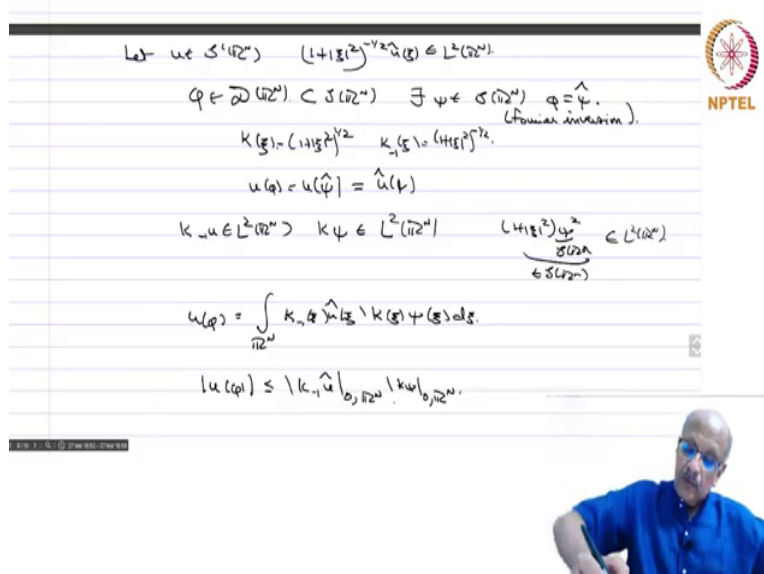 Let u ∈ S'(ℝᴺ) (1+|ξ|²)^{-1/2} û(ξ) ∈ L²(ℝᴺ).
φ ∈ D(ℝᴺ) ⊂ S(ℝᴺ) ∃ ψ ∈ S(ℝᴺ) φ = ψ̂.
(Fourier inversion).
k(ξ) = (1+|ξ|²)^{1/2} k₋₁(ξ) = (1+|ξ|²)^{-1/2}.
u(φ) = u(ψ̂) = û(ψ)
k₋₁u ∈ L²(ℝᴺ) kψ ∈ L²(ℝᴺ) (1+|ξ|²)ψ² ∈ L²(ℝᴺ).
S(ℝᴺ)
∈ S(ℝᴺ)
u(φ) = ∫_{ℝᴺ} k₋₁(ξ) û(ξ) k(ξ) ψ(ξ) dξ.
|u(φ)| ≤ |k₋₁ û|_{0,ℝᴺ} |kψ|_{0,ℝᴺ}.
NPTEL